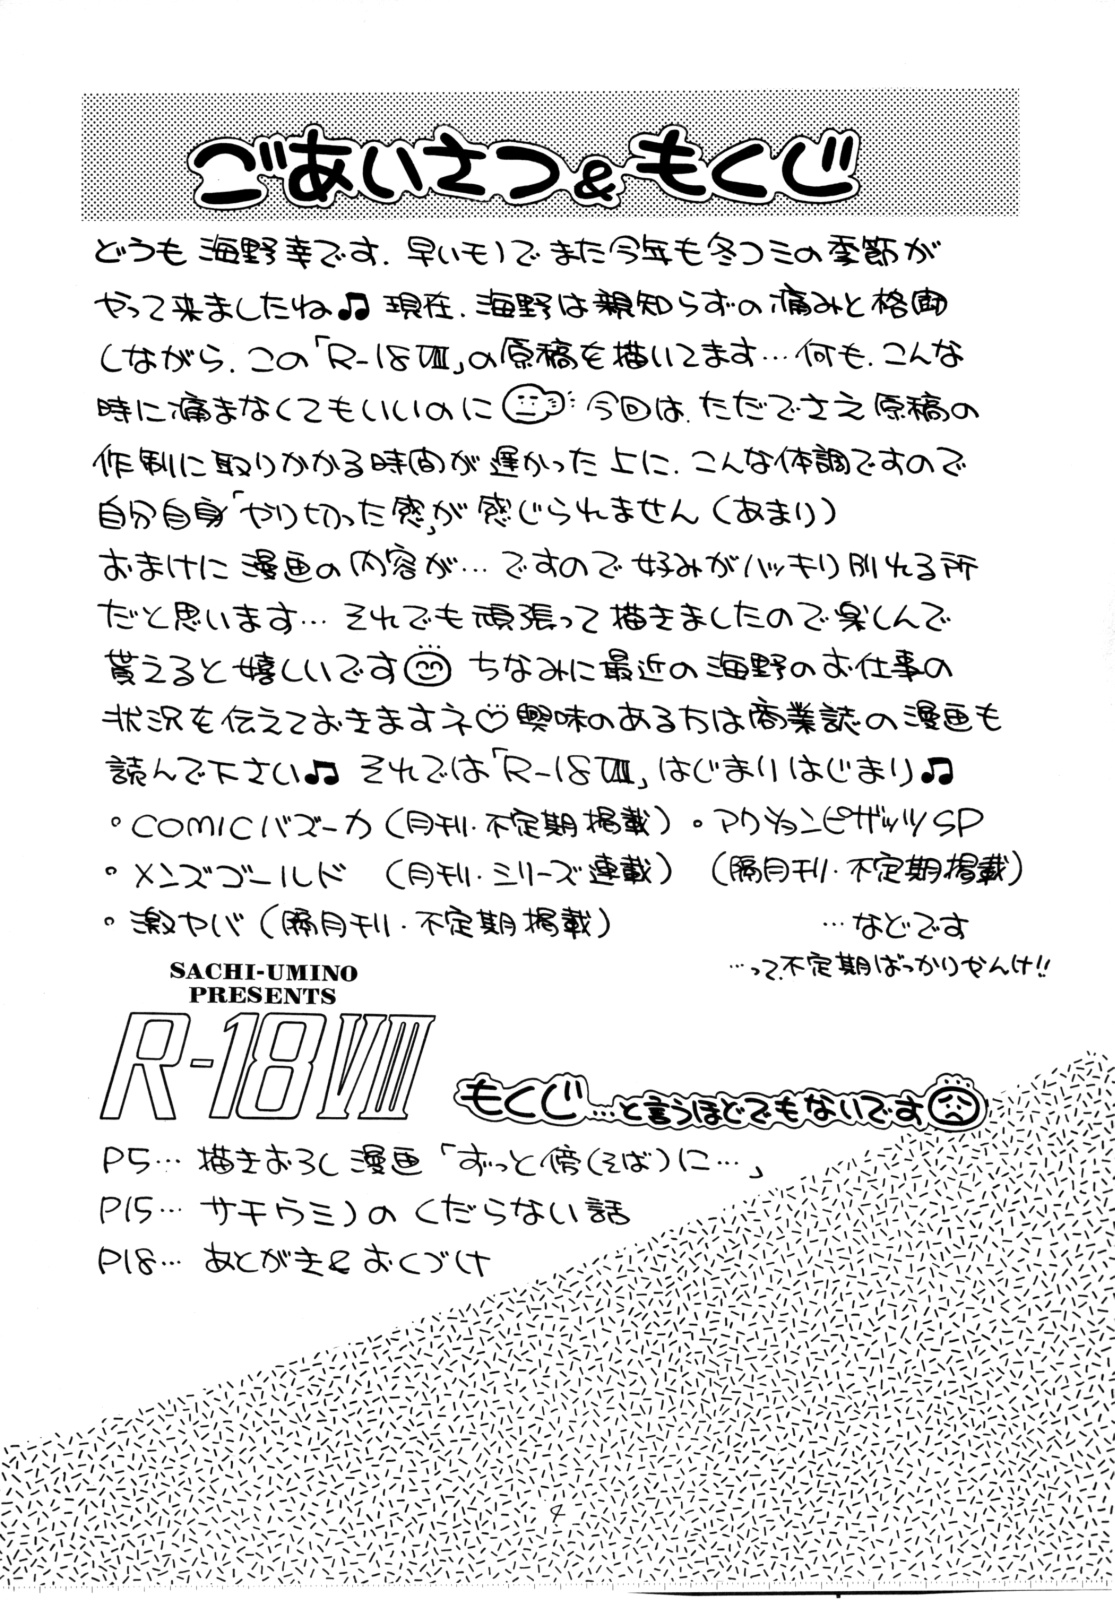 ごあいさつ&もくじ
どうも海野幸です.早いモノでまた今年も冬コミの季節が
やって来ましたね♫現在.海野は親知らずの痛みと格闘
しながら.この「R-18Ⅷ」の原稿を描いてます…何も.こんな
時に痛まなくてもいいのに 今回は.ただでさえ原稿の
作製に取りかかる時間が遅かった上に.こんな体調ですので
自分自身「やり切った感」が感じられません(あまり)
おまけに漫画の内容が…ですので好みがハッキリ別れる所
だと思います…それでも頑張って描きましたので楽しんで
貰えると嬉しいです ちなみに最近の海野のお仕事の
状況を伝えておきますネ♡興味のある方は商業誌の漫画も
読んで下さい♫それでは「R-18Ⅷ」はじまりはじまり♫
。COMICバズーカ(月刊・不定期掲載)。アクションピザッツSP
。メンズゴールド (月刊・シリーズ連載) (隔月刊・不定期掲載)
。激ヤバ(隔月刊・不定期掲載) …などです
…って.不定期ばっかりやんけ!!
SACHI-UMINO
PRESENTS
R-18Ⅷ
もくじ…と言うほどでもないです
P5…描きおろし漫画「ずっと傍(そば)に…」
P15…サチウミノのくだらない話
P18…あとがき&おくづけ
4